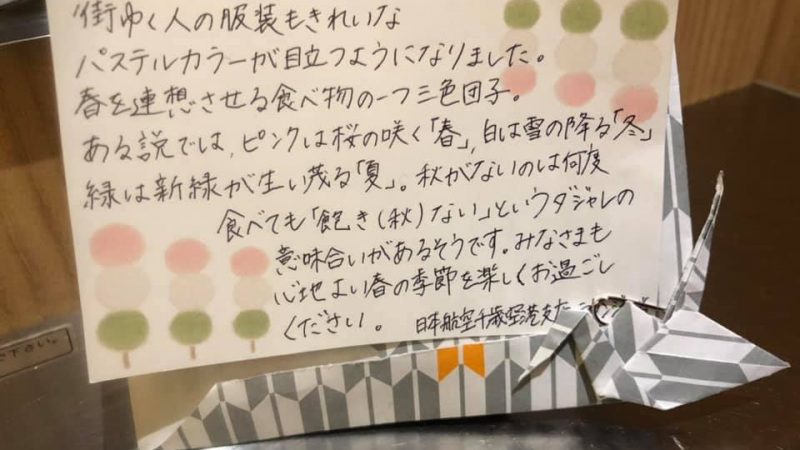 街ゆく人の服装もきれいな
パステルカラーが目立つようになりました。
春を連想させる食べ物の一つ三色団子。
ある説では、ピンクは桜の咲く「春」、白は雪の降る「冬」
緑は新緑が生い茂る「夏」。秋がないのは何度
食べても「飽き(秋)ない」というダジャレの
意味合いがあるそうです。みなさまも
心地よい春の季節を楽しくお過ごし
ください。
日本航空千歳空港支
下さい。